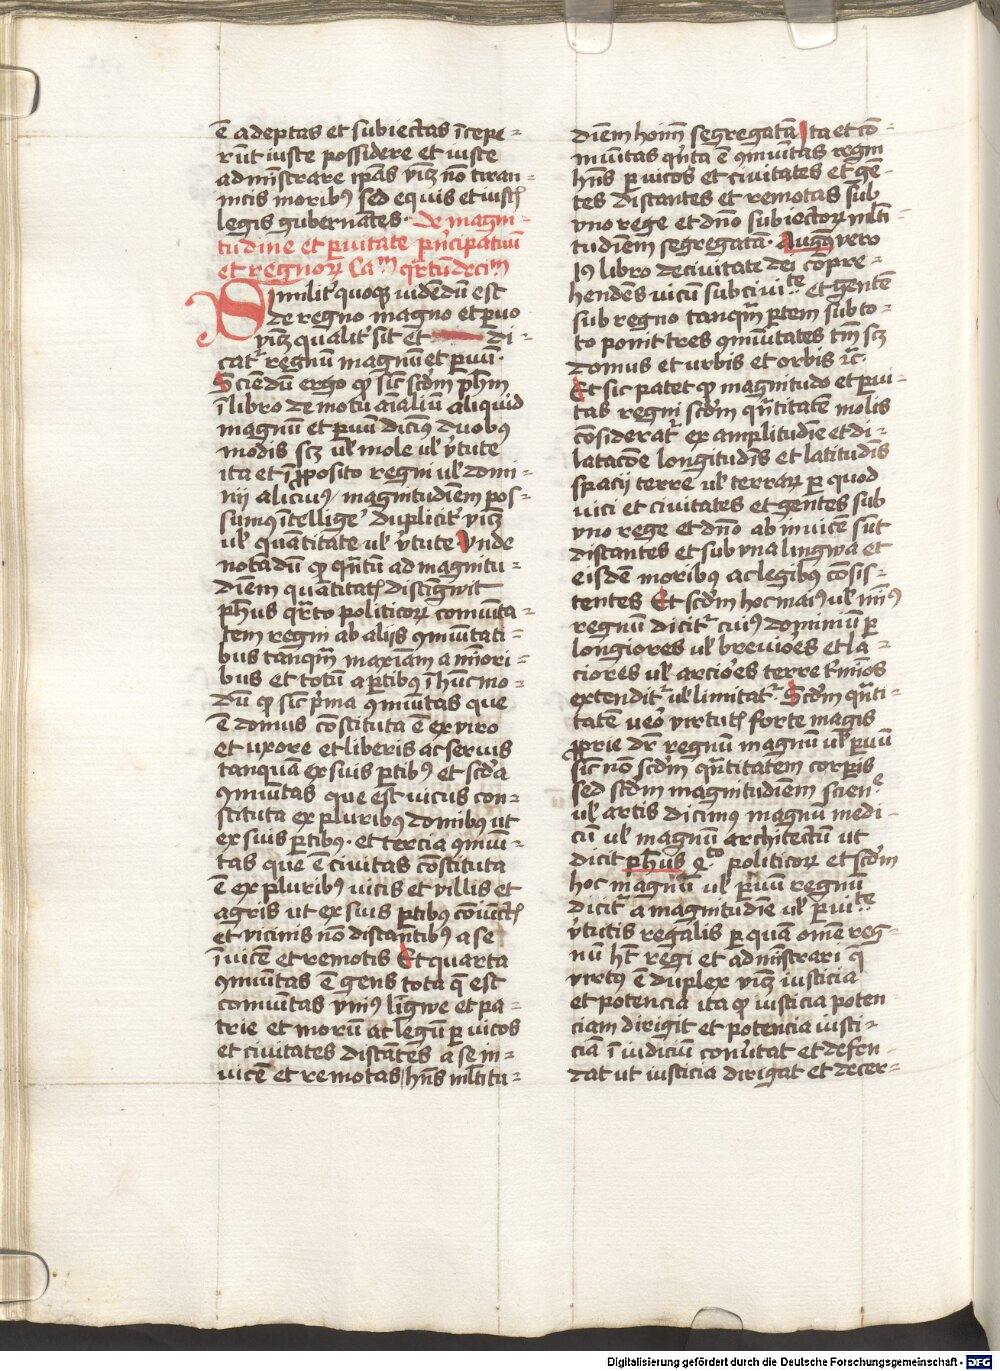 ē adeptas et subiectas īcepe-
rūt iuste possidere et iuste
admīstrare ip̄as viꝫ nō tiran-
nicis moribꝰ sed equis et iustꝭ
legis gubernātes. De magni-
tudine et p̲uitate p̄ncipatuū
et regnoꝝ Caᵐ qͬtūdeciᵐ
Similitͬ quoqꝫ vidēdū est
de regno magno et p̲uo
viꝫ qualitͬ sit et di-
catͬ regnū magnū et p̲uū.
Sciendū ergo ꝙ sic̄ scd̄m ph̄m
ī libro de motu aīaliū aliquid
magnū et p̲uū dicimꝰ duobꝰ
modis scꝫ ul̓ mole ul̓ v̓tute
ita et ī p̱posito regni ul̓ domi-
nij alicuiꝰ magnitudinem pos-
sumꝰ ītellige̓ duplicitͬ viꝫ
ul̓ quātitate ul̓ v̓tute Vnde
notādū ꝙ qn̄tū ad magnitu-
dinem quātitatꝭ distīgwit
ph̄us qͬto politicoꝝ comūita-
tem regni ab alijs ꝯmūitati-
bus tanqͣm maximam a minori-
bus et totū a p̲tibus ī hūc mo-
dū ꝙ sic̄ pͥma ꝯmūitas que
ē domus cōstituta ē ex viro
et vxore et liberis ac seruis
tanquā ex suis p̲tibꝰ et scd̄a
ꝯmūitas que est vicus con-
stituta ex pluribꝰ domibus ut
ex suis p̲tibus. et tercia ꝯmūi-
tas que ē civitas cōstituta
ē ex pluribꝰ vicis et villis et
agris ut ex suis p̲tibus cōiūctꝭ
et vicinis nō distantibꝰ a se
īuicē et remotis Et quarta
ꝯmūitas ē gens tota q̄ est
comūitas vniꝰ līgwe et pa-
trie et morū ac legū p̲ vicos
et civitates distātes a se in-
uicē et remotas hn̄s ml̓titu-
dinem hoīm segregatā Ita et cō-
mūitas qͥnta ē ꝯmūitas regni
hn̄s p̲ vicos et civitates et gē-
tes distantes et remotas sub
vno rege et dn̄o subiectoꝝ ml̓ti-
tudinem segregatā. Augꝰ vero
19 libro de civitate dei cōpre-
hendēs vicū sub civiᵗᵉ et gentē
sub regno tanqͣm p̲tem sub to-
to ponit tres ꝯmūitates tm̄ scꝫ
domus et urbis et orbis ꝛc̄.
Et sic patet ꝙ magnitudo et p̲ui-
tas regni scd̄m qn̄titatē molis
cōsideratͬ ex amplitudīe et di-
latacōe longitudīs et latitudīs
spacij terre ul̓ terraꝝ p̲ quod
vici et civitates et gentes sub
vno rege et dn̄o ab inuicē sūt
distantes et sub vna lingwa et
eisdē moribꝰ ac legibꝰ cōsis-
tentes Et scd̄m hoc maiꝰ ul̓ mīꝰ
regnū dicitͬ cuiꝰ dominiū p̲
longiores ul̓ breuiōes et la-
ciores ul̓ arciōes terre tͬmīos
extenditͬ ul̓ limitatͬ. Scd̄m qn̄ti-
tatē ueo̓ virtutꝭ forte magis
p̱prie dr̄ regnū magnū ul̓ p̲uū
sic̄ nō scd̄m qn̄titatem corp̲is
sed scd̄m magnitudinem scienᵉ
ul̓ artis dicimus magnū medi-
cū ul̓ magnū architectū ut
dicit ph̄us q.ᵗᵒ politicoꝝ et scd̄m
hoc magnū ul̓ p̲uū regnū
dicitͬ a magnitudīe ul̓ p̲uiᵗᵉ
v̓tutis regalis p̲ quā omē reg-
nū ht̄ regi et admīstrari q̄
virtꝰ ē duplex viꝫ iusticia
et potencia ita ꝙ iusticia poten
ciam dirigit et potencia iusti-
ciā ī iudiciū conv̓tat et defen
dat ut iusticia dirigat et decer-
Digitalisierung gefördert durch die Deutsche Forschungsgemeinschaft - DFG